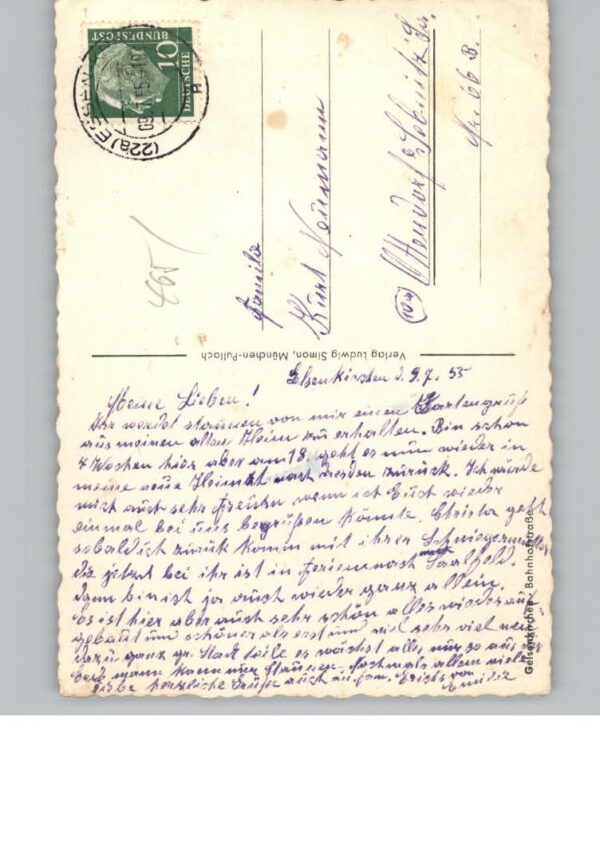 DEUTSCHE
BUNDESPOST
10
(22a) ESSEN
465
Familie
Kurt Neumann
(10a) Ottendorf b. Sebnitz Sa.
Nr. 66 B.
Verlag Ludwig Simon, München-Pullach
Gelsenkirchen - Bahnhofstraße
Gelsenkirchen d. 9.7. 55
Meine Lieben!
Ihr werdet staunen von mir einen Kartengruß
aus meinen alten Heim zu erhalten. Bin schon
4 Wochen hier aber am 18. geht es nun wieder in
meine neue Heimat nach zurück. Ich würde
mich auch sehr freuen wenn ich Euch wieder
einmal bei uns begrüßen könnte. Christa geht
sobald ich zurück komm mit ihrer Schwiegermutter
die jetzt bei ihr ist in Ferien nach Saalfeld.
dann bin ich ja auch wieder ganz allein.
Es ist hier aber auch sehr schön alles wieder auf-
gebaut und schöner als erst und viel sehr viel neu
dazu ganz gr. Stadtteile es wächst alles nur so aus der
Erde mann kann nur staunen. Nochmals allen viele
liebe herzliche Grüße auch an Fam. Erichs von